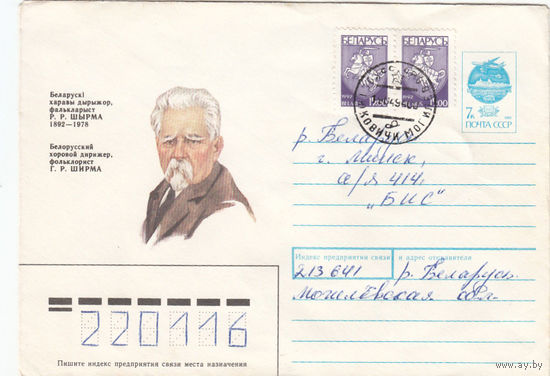 Беларускі
харавы дырыжор,
фалькларыст
Р. Р. ШЫРМА
1892—1978
Белорусский
хоровой дирижер,
фольклорист
Г. Р. ШИРМА
БЕЛАРУСЬ
БЕЛАРУСЬ
1992
7к
ПОЧТА СССР
р. Беларусь
г. Минск,
а/я 414.
„БИС"
Индекс предприятия связи и адрес отправителя
213641 р. Беларусь
Могилёвская обл.
220116
Пишите индекс предприятия связи места назначения
www.ay.by